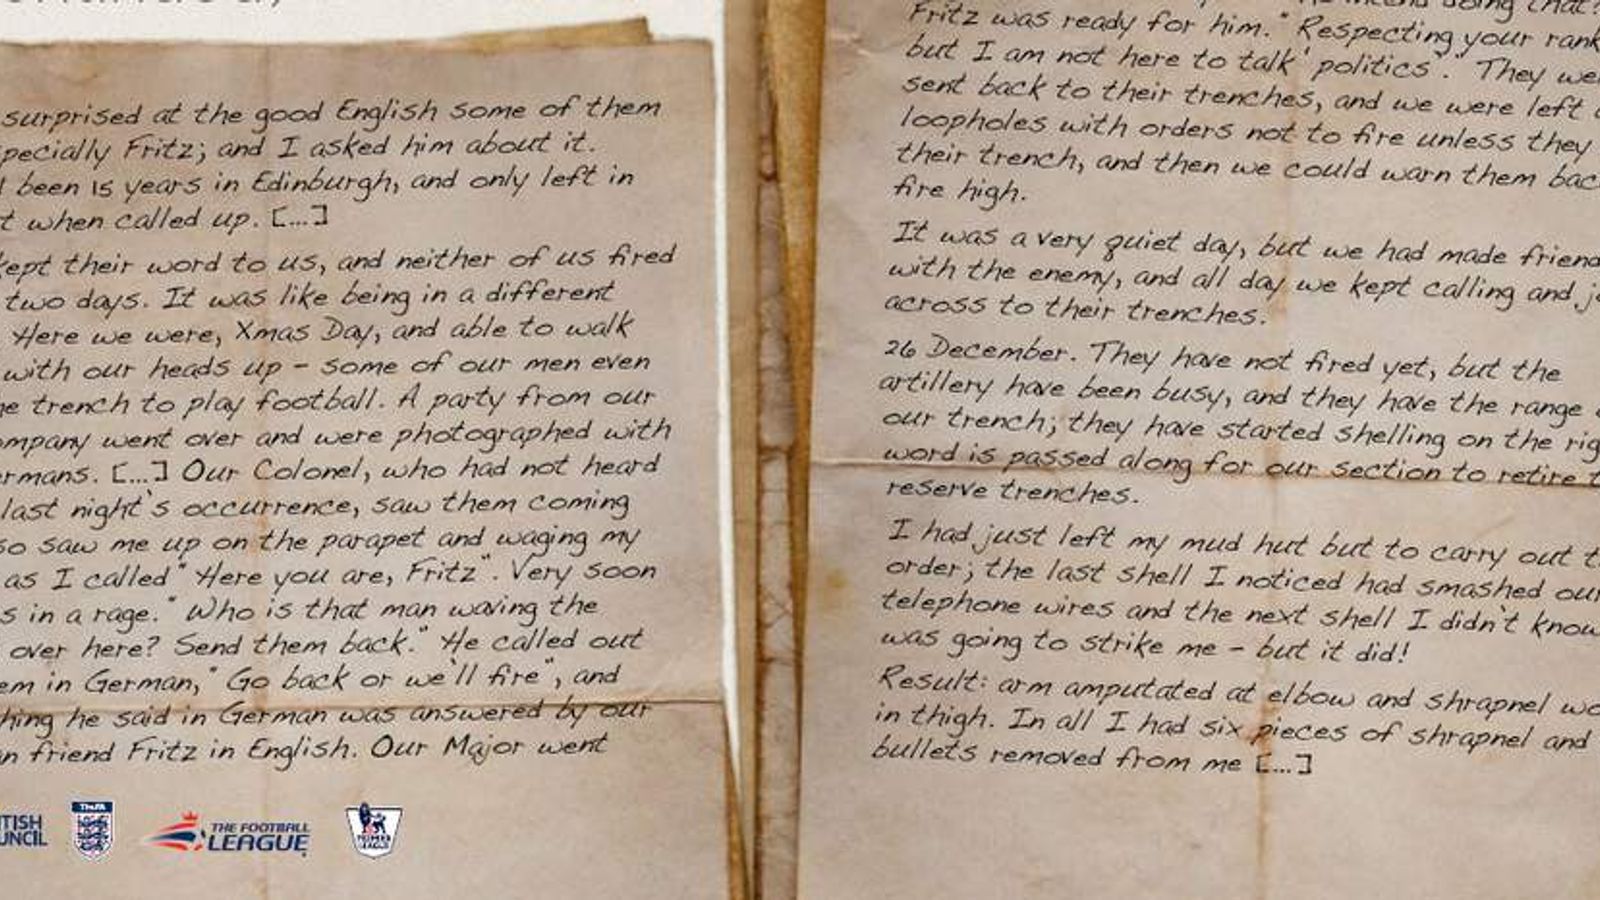 surprised at the good English some of them
pecially Fritz; and I asked him about it.
been 15 years in Edinburgh, and only left in
t when called up. [...]
kept their word to us, and neither of us fired
two days. It was like being in a different
Here we were, Xmas Day, and able to walk
with our heads up – some of our men even
he trench to play football. A party from our
ompany went over and were photographed with
ermans. [...] Our Colonel, who had not heard
last night's occurrence, saw them coming
so saw me up on the parapet and waging my
as I called "Here you are, Fritz". Very soon
s in a rage. "Who is that man waving the
over here? Send them back." He called out
em in German, "Go back or we'll fire", and
hing he said in German was answered by our
n friend Fritz in English. Our Major went
TISH
UNCIL
THE FA
THE FOOTBALL
LEAGUE
PREMIER
LEAGUE
intend doing that?
Fritz was ready for him. "Respecting your rank
but I am not here to talk 'politics'." They we
sent back to their trenches, and we were left
loopholes with orders not to fire unless they
their trench, and then we could warn them bac
fire high.
It was a very quiet day, but we had made friend
with the enemy, and all day we kept calling and j
across to their trenches.
26 December. They have not fired yet, but the
artillery have been busy, and they have the range
our trench; they have started shelling on the rig
word is passed along for our section to retire t
reserve trenches.
I had just left my mud hut but to carry out t
order; the last shell I noticed had smashed our
telephone wires and the next shell I didn't know
was going to strike me – but it did!
Result: arm amputated at elbow and shrapnel wo
in thigh. In all I had six pieces of shrapnel and
bullets removed from me [...]